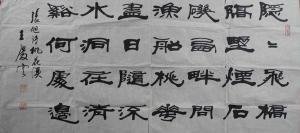 隱〻飛橋
隔野煙石
磯西畔問
漁船桃華
盡日隨流
水洞在清
谿何處邊
張旭詩桃花溪
王慶雲